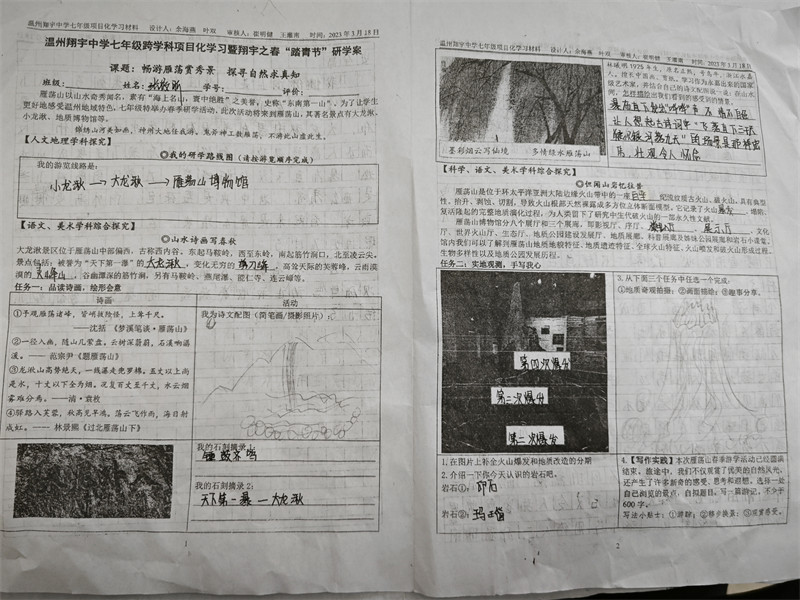 温州翔宇中学七年级项目化学习材料 设计人：余海燕 叶双 审核人：崔明键 王雁南 时间：2023年3月15日
温州翔宇中学七年级跨学科项目化学习暨翔宇之春“踏青节”研学案
课题：畅游雁荡赏秀景 探寻自然求真知
班级： 姓名： 学号： 评价：
雁荡山以山水奇秀闻名，素有“海上名山，寰中绝胜”之美誉，史称“东南第一山”。为了让学生
更好地感受温州地域特色，七年级特举办春季研学活动，此次活动将来到雁荡山，其著名景点有大龙湫、
小龙湫、地质博物馆等。
锦绣山河美如画，神州大地任我游。鬼斧神工数雁荡，不游此山虚此生。
【人文地理学科探究】
◎我的研学路线图（请按游览顺序完成）
我的游览线路是：
小龙湫→大龙湫→雁荡山博物馆
【语文、美术学科综合探究】
◎山水诗画写春秋
大龙湫景区位于雁荡山中部偏西，古称西内谷，东起马鞍岭，西至东岭，南起筋竹涧口，北至凌云尖。
景点包括：被誉为“天下第一瀑”的大龙湫，变化无穷的剪刀峰，高耸天际的芙蓉峰，云雨漠
漠的，谷幽潭深的筋竹涧，另有马鞍岭、燕尾瀑、能仁寺、连云嶂等。
任务一：品读诗画，绘形会意
诗画
活动
①予观雁荡诸峰，皆峭拔险怪，上耸千尺。
——沈括 《梦溪笔谈·雁荡山》
②一径入幽，随山几萦盘。云树深翳蔚，石溪响潺
湲。——范宗尹《题雁荡山》
③龙湫山高势绝天，一线瀑走兜罗棉。五丈以上尚
是水，十丈以下全为烟。况复百丈至千丈，水云烟
雾难分焉。——清·袁枚
④驿路入芙蓉，秋高见早鸿。荡云飞作雨，海日射
成虹。——林景熙《过北雁荡山下》
我为诗文配图（简笔画/摄影照片）：
我的石刻摘录1：
钟鼓齐鸣
我的石刻摘录2：
天下第一瀑—大龙湫
1
温州翔宇中学七年级项目化学习材料 设计人：余海燕 叶双 审核人：崔明键 王雁南 时间：2023年3月15日
墨彩烟云写仙境 多情绿水雁荡山
林曦明1925年生，原名正熙，号乌牛，浙江永嘉
人。擅长中国画、剪纸。学习作为永嘉出来的国家
级艺术家，并结合自己的诗文配画说一说：在山水
间，怎样描绘出我们看到的感受到的情景。
让人想起古诗词中“飞流直下三千
尺，疑是银河落九天”的场景是那样宏
伟、壮观，令人
【科学、语文、美术学科综合探究】
◎但闻山岩忆往昔
雁荡山是位于环太平洋亚洲大陆边缘火山带中的一座白垩纪流纹质古火山、破火山，具有典型
性。抬升、剥蚀、切割，导致火山根部天然裸露成多方位立体断面模型，它记录了火山爆发、塌陷、
复活隆起的完整地质演化过程，为人类留下了研究中生代破火山的一部永久性文献。
雁荡山博物馆分八个展厅和三个展廊，即影视厅、序厅、、展示厅、文化
厅、世界火山厅、生态厅、地质公园建设发展厅、地质展廊、科普展廊及姊妹公园展廊和岩石小道集，
馆内我们可以了解到雁荡山地质地貌特征、地质遗迹特征、全球火山特征、火山喷发和破火山形成过程、
生物多样性以及地质公园发展历程。
任务二：实地观测，手写我心
第四次爆发
第三次爆发
第二次爆发
3.从下面三个任务中任选一个完成：
①地质奇观拍摄；②画面描绘；③趣事分享。
1.在图片上补全火山爆发和地质改造的分期
2.介绍一下你今天认识的岩石吧。
岩石①：印石
岩石②：玛瑙
4.【写作实践】本次雁荡山春季游学活动已经圆满
结束，旅途中，我们不仅观赏了优美的自然风光，
还产生了许多新奇的感受、思考和遐想。选择一处
自己游览的景点，自拟题目，写一篇游记，不少于
600字。
写法小贴士：①游踪；②移步换景；③写景感受。
2